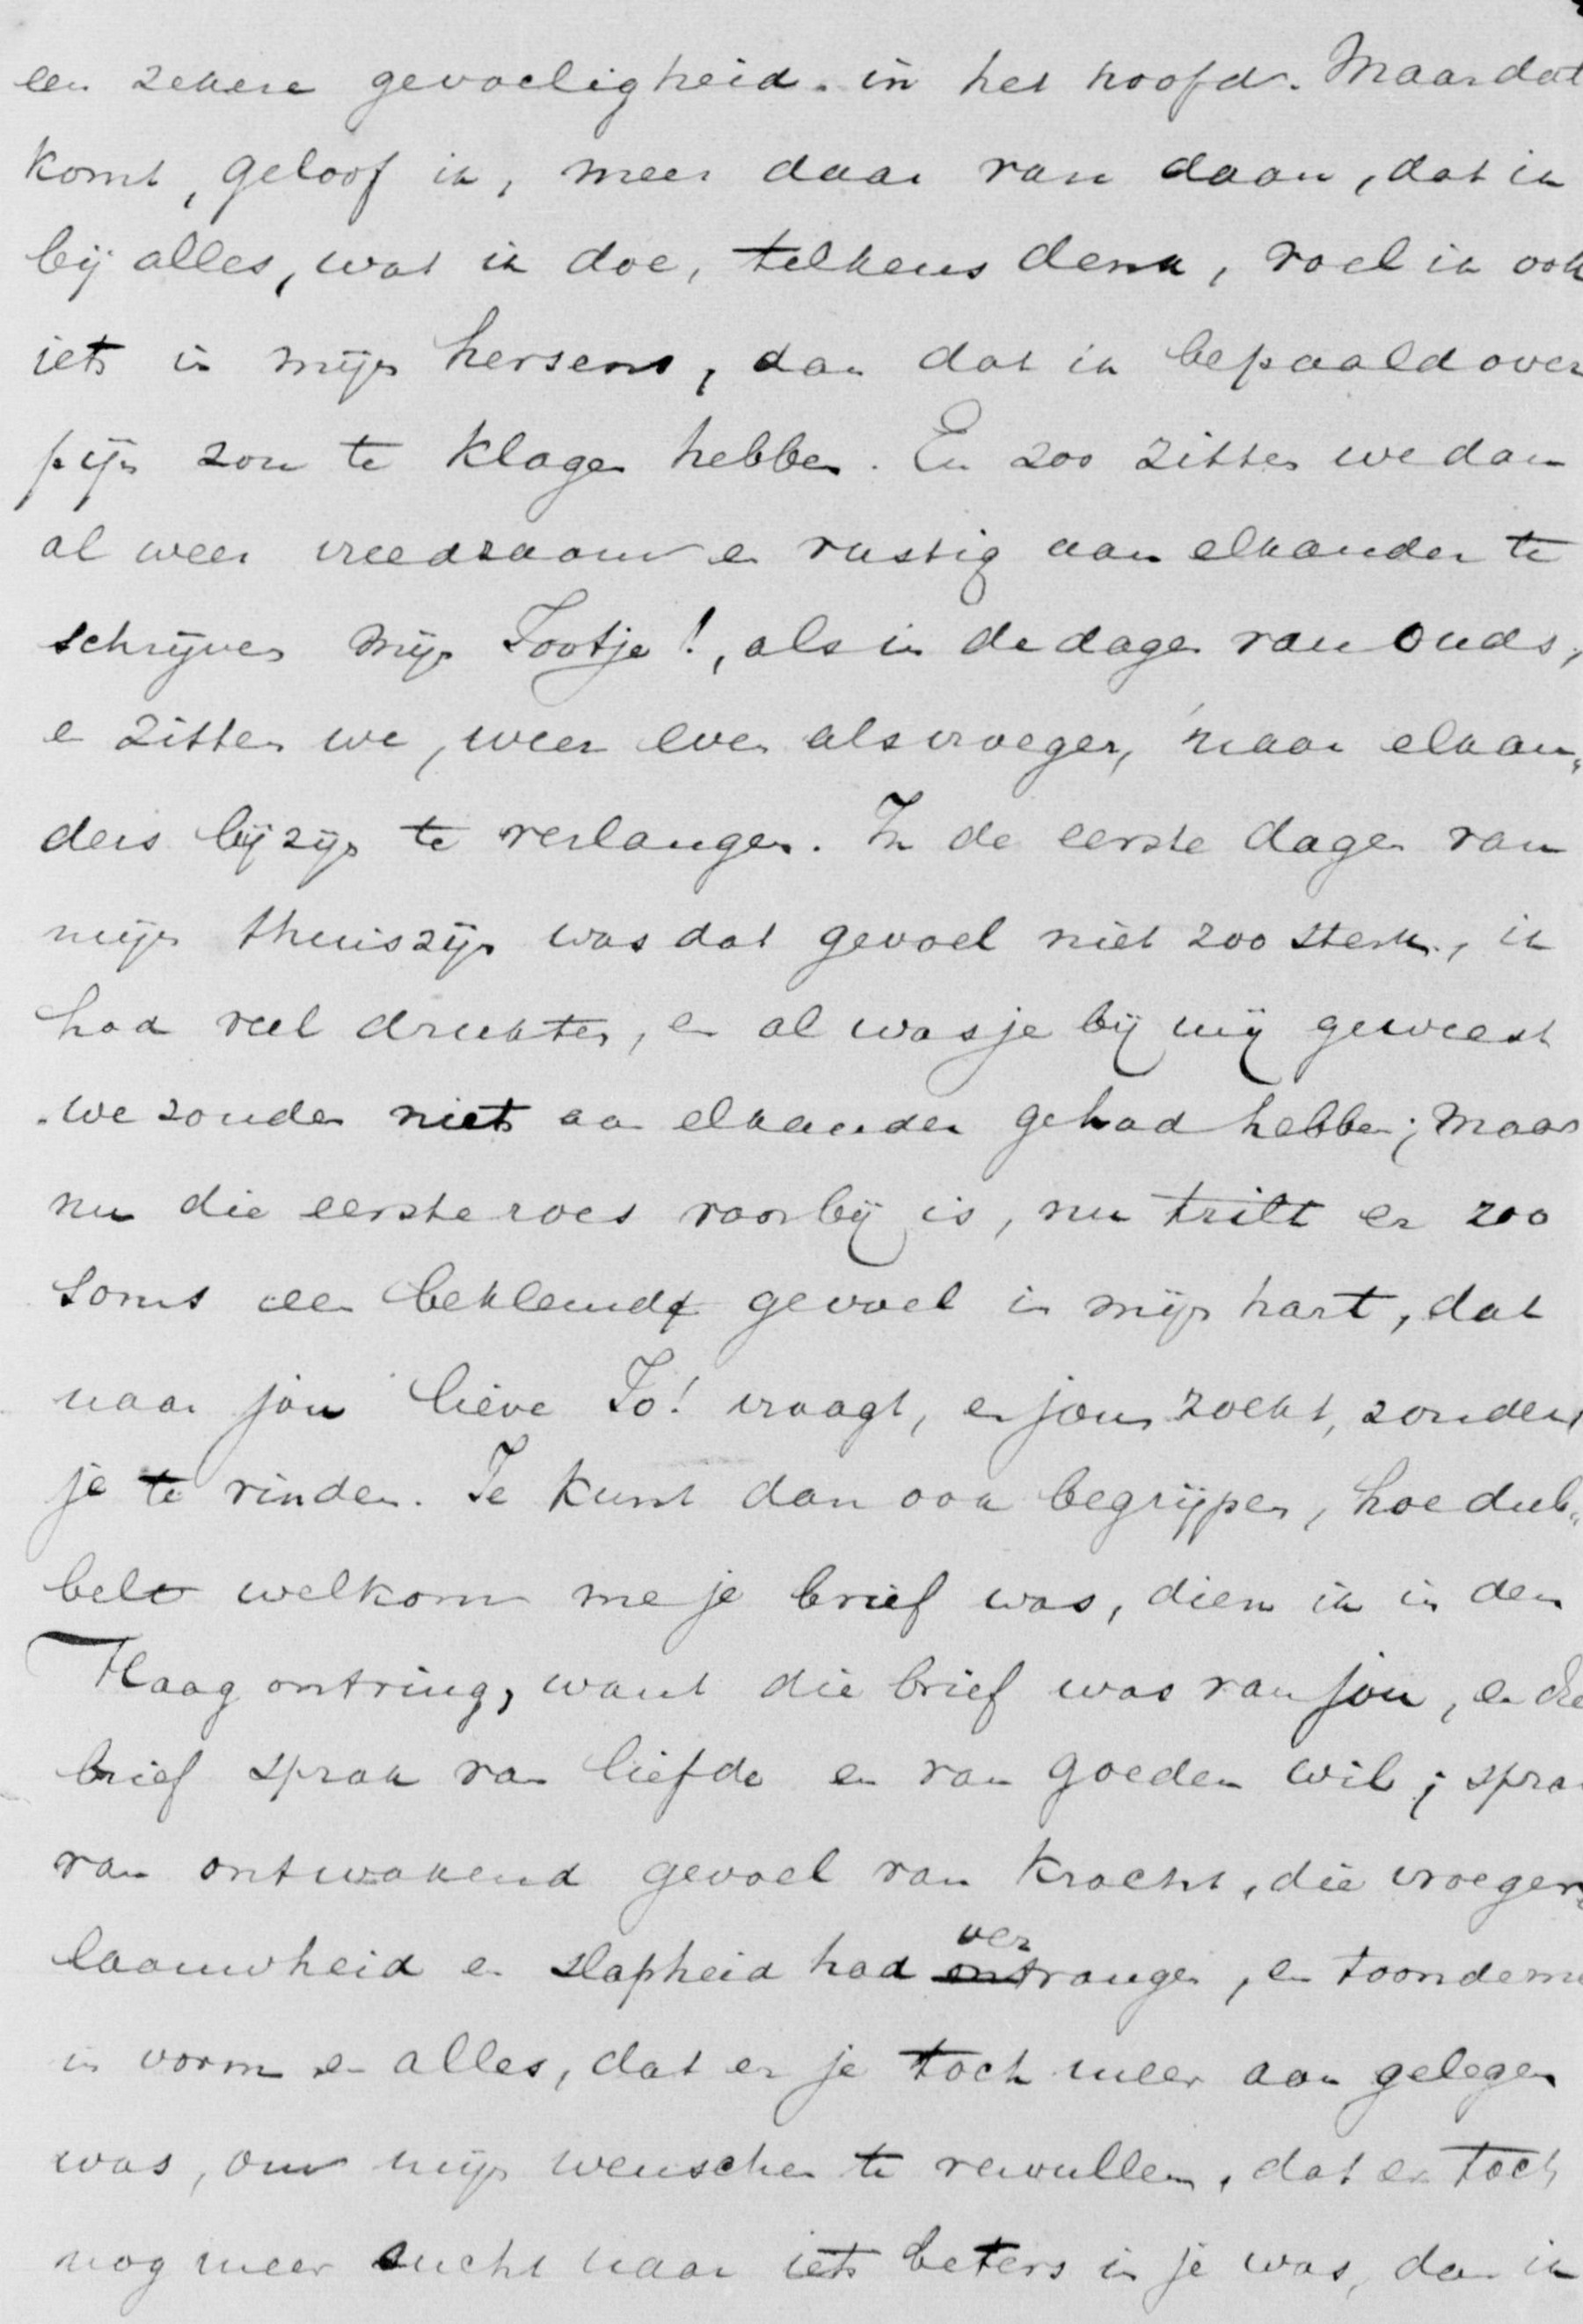 een zekere gevoeligheid in het hoofd. Maar dat
komt, geloof ik, meer daar van daan, dat ik
bij alles, wat ik doe, telkens denk, voel ik ook
iets in mijn hersens, dan dat ik bepaald over
pijn zou te klagen hebben. En zoo zitten we dan
al weer vreedzaam en rustig aan elkander te
schrijven mijn Jootje!, als in de dagen van ouds,
en zitten we, weer even als vroeger, naar elkan„
ders bijzijn te verlangen. In de eerste dagen van
mijn thuiszijn was dat gevoel niet zoo sterk, ik
had veel drukten, en al was je bij mij geweest
we zouden niets aan elkander gehad hebben; maar
nu die eerste roes voorbij is, nu trilt er zoo
soms een beklemd gevoel in mijn hart, dat
naar jou lieve Jo! vraagt, en jou zoekt, zonder
je te vinden. Je kunt dan ook begrijpen, hoe dub„
beld welkom me je brief was, dien ik in den
Haag ontving, want die brief was van jou, en die
brief sprak van liefde en van goeden wil; sprak
van ontwakend gevoel van kracht, die vroegere
laauwheid en slapheid had ver
ontvangen, en toonde me
in vorm en alles, dat er je toch meer aan gelegen
was, om mijn wenschen te vervullen, dat er toch
nog meer zucht naar iets beters in je was, dan ik